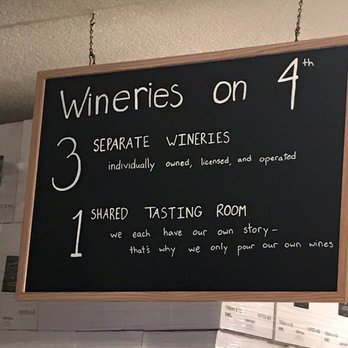 Wineries on 4th
3 SEPARATE WINERIES
individually owned, licensed, and operated
1 SHARED TASTING ROOM
we each have our own story –
that's why we only pour our own wines